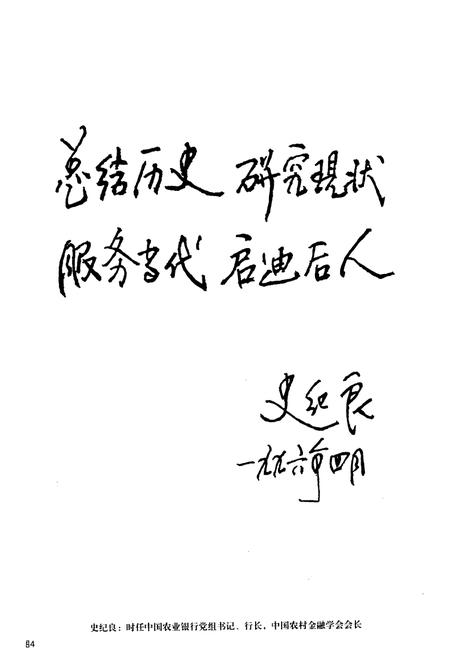 总结历史 研究現状
服务当代 启迪后人
史纪良
一九九六年四月
史纪良：时任中国农业银行党组书记、行长，中国农村金融学会会长
84